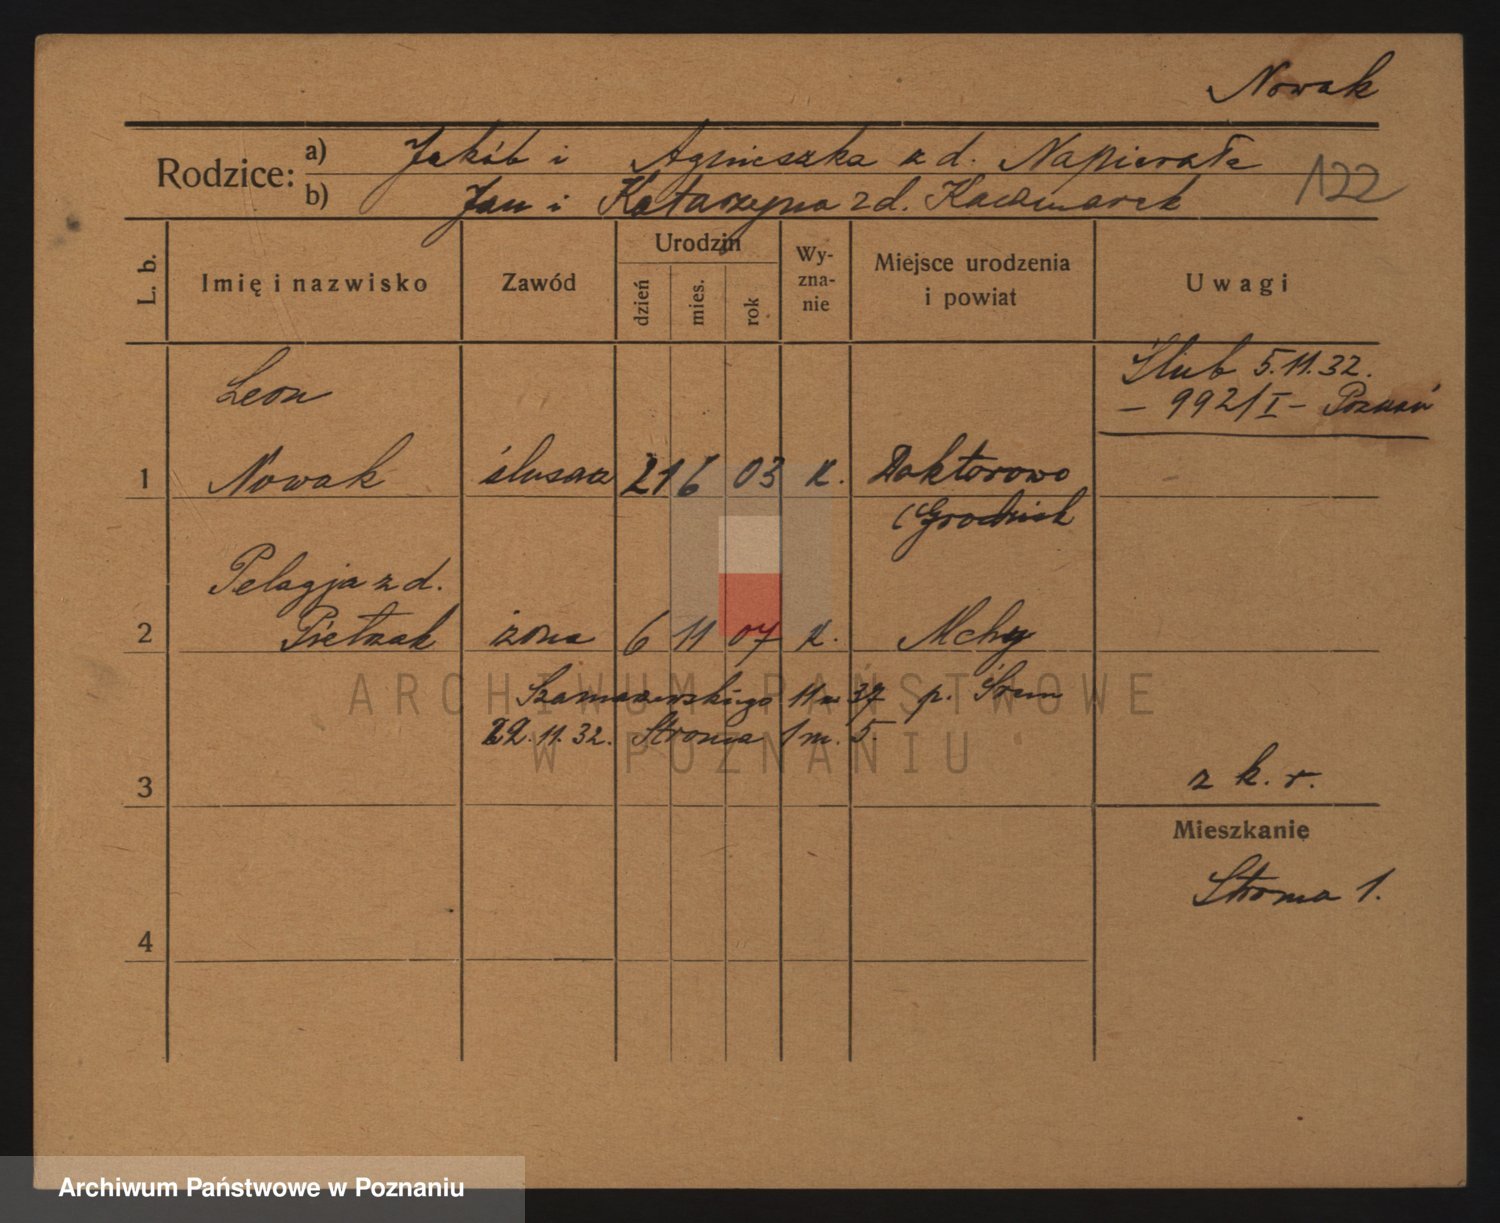 Nowak
Rodzice:
a) Jakób i Agnieszka z d. Napierała
122
b) Jan i Katarzyna z d. Kaczmarek
L. b.
Imię i nazwisko
Zawód
Urodzin
dzień
mies.
rok
Wy-
zna-
nie
Miejsce urodzenia
i powiat
Uwagi
Ślub 5.11.32.
– 992/I – Poznań
Leon
1 Nowak ślusarz 21 6 03 k. Doktorowo
(Grodzisk
Pelagja z d.
2 Pietrzak żona 6 11 07 k. Mchy
Szamarzewskiego 11 m 37 p. Śrem
22.11.32. Stroma 1 m. 5.
3
z k. r.
Mieszkanie
Stroma 1.
4
ARCHIWUM PAŃSTWOWE
W POZNANIU
Archiwum Państwowe w Poznaniu